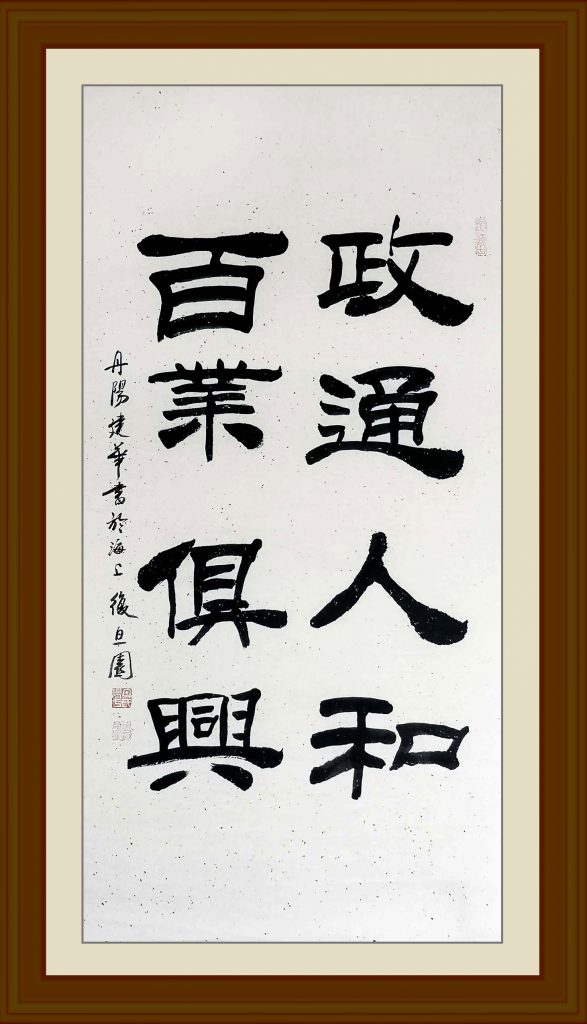 政通人和
百業俱興
丹陽建華書於海上復旦園